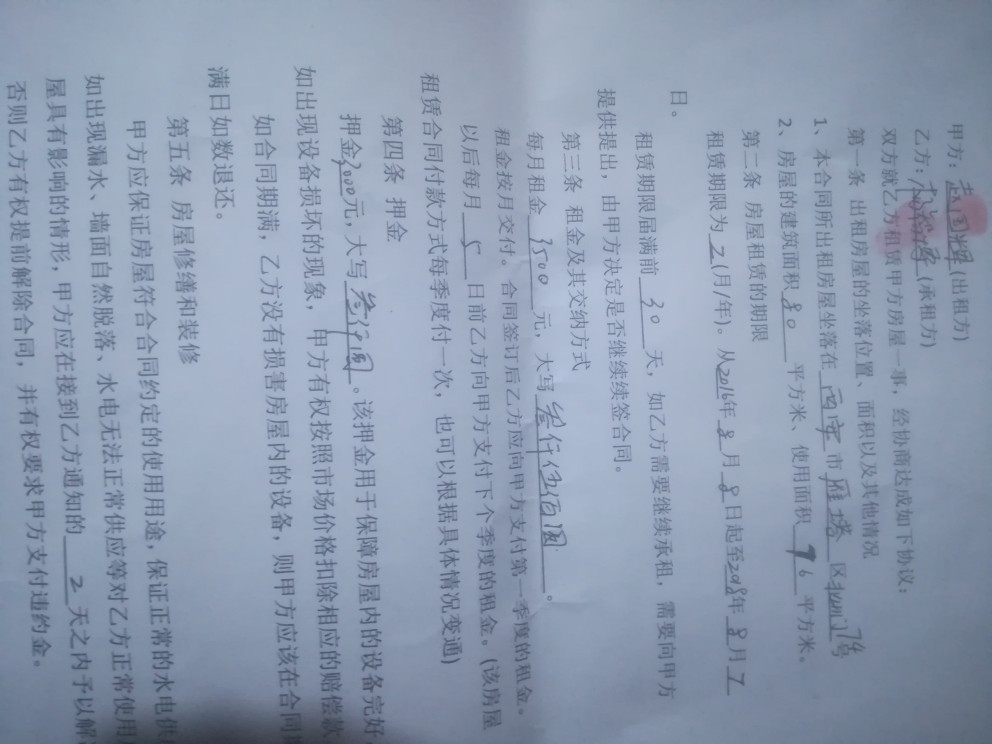 甲方:(出租方)
乙方:(承租方)
双方就乙方租赁甲方房屋一事,经协商达成如下协议:
第一条 出租房屋的坐落位置、面积以及其他情况
1、本合同所出租房屋坐落在 市 雁塔 区
2、房屋的建筑面积 80 平方米、使用面积 76 平方米。
第二条 房屋租赁的期限
租赁期限为 2 (月/年),从2016年 8 月 8 日起至2018年 8 月 7
日。
租赁期限届满前 30 天,如乙方需要继续承租,需要向甲方
提供提出,由甲方决定是否继续续签合同。
第三条 租金及其交纳方式
每月租金 3500 元,大写 叁仟伍佰圆 。
租金按月交付。合同签订后乙方应向甲方支付第一季度的租金。
以后每月 5 日前乙方向甲方支付下个季度的租金。(该房屋
租赁合同付款方式每季度付一次,也可以根据具体情况变通)
第四条 押金
押金3000元,大写 叁仟圆 。该押金用于保障房屋内的设备完好,
如出现设备损坏的现象,甲方有权按照市场价格扣除相应的赔偿款
如合同期满,乙方没有损害房屋内的设备,则甲方应该在合同
满日如数退还。
第五条 房屋修缮和装修
甲方应保证房屋符合合同约定的使用用途,保证正常的水电供
如出现漏水、墙面自然脱落、水电无法正常供应等对乙方正常使用
屋具有影响的情形,甲方应在接到乙方通知的 2 天之内予以解
否则乙方有权提前解除合同,并有权要求甲方支付违约金。